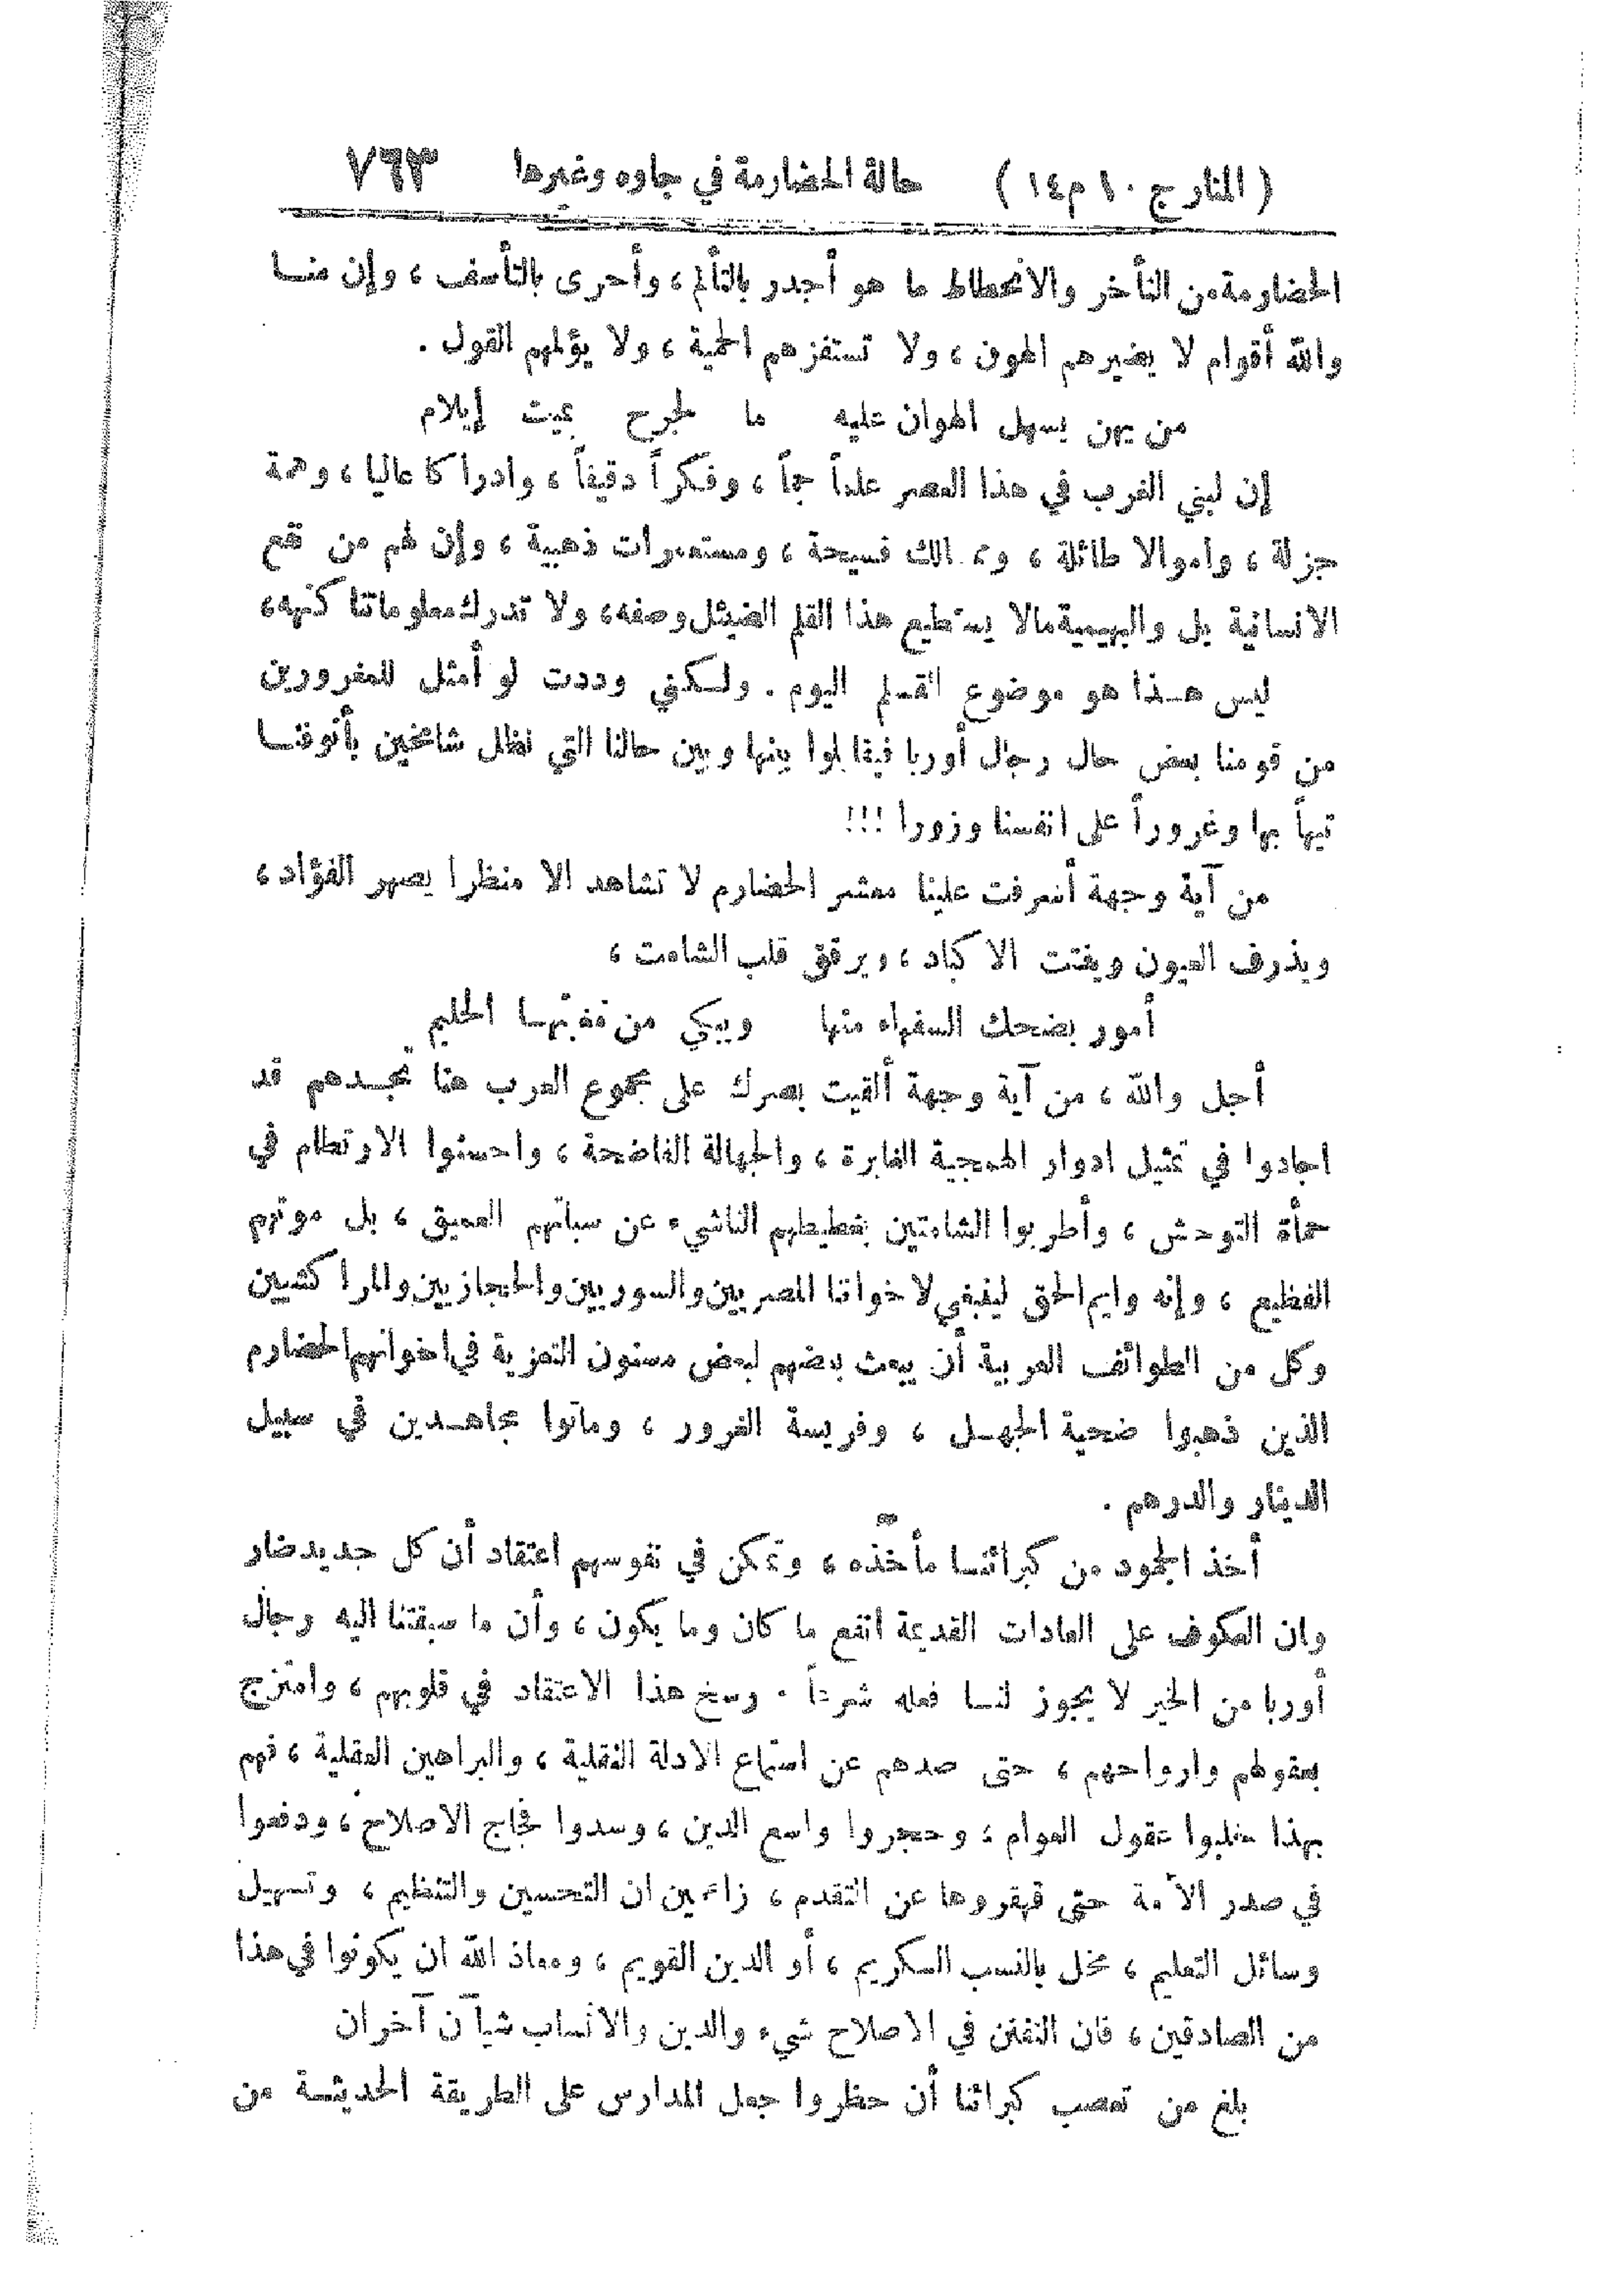 ( المنار ج ١٠ م ١٤ ) حالة الحضارمة في جاوه وغيرها ٧٦٣
الحضارمة من التأخر والانحطاط ما هو أجدر بالتألم ، وأحرى بالتأسف ، وإن منا
والله أقوام لا يضيرهم الهون ، ولا تستفزهم الحمية ، ولا يؤلمهم القول .
من يهن يسهل الهوان عليه ما لجرح بميت إيلام
إن لبني الغرب في هذا العصر علماً جماً ، وفكراً دقيقاً ، وادراكا عاليا ، وهمة
جزلة ، واموالا طائلة ، وممالك فسيحة ، ومستعمرات ذهبية ، وإن لهم من نفع
الانسانية بل والبهيمية مالا يستطيع هذا القلم الضئيل وصفه ، ولا تدرك معلوماتنا كنهه ،
ليس هذا هو موضوع القلم اليوم . ولكني وددت لو أمثل للمغرورين
من قومنا بعض حال رجال أوربا فيقابلوا بينها وبين حالنا التي نظل شامخين بأنوفنا
تيهاً بها وغروراً على انفسنا وزورا !!!
من آية وجهة أشرفت علينا معشر الحضارم لا تشاهد الا منظرا يصهر الفؤاد ،
ويذرف العيون ويفتت الاكباد ، ويرقق قلب الشامت ،
أمور يضحك السفهاء منها ويبكي من مغبتها الحليم
أجل والله ، من آية وجهة ألقيت بصرك على مجموع العرب هنا تجدهم قد
اجادوا في تمثيل ادوار الهمجية الغابرة ، والجهالة الفاضحة ، واحسنوا الارتطام في
حمأة التوحش ، وأطربوا الشامتين بغطيطهم الناشيء عن سباتهم العميق ، بل موتهم
الفظيع ، وإنه وايم الحق لينبغي لاخواننا المصريين والسوريين والحجازيين والمراكشيين
وكل من الطوائف العربية أن يبعث بعضهم لبعض مسنون التعزية في اخوانهم الحضارم
الذين ذهبوا ضحية الجهل ، وفريسة الغرور ، وماتوا مجاهدين في سبيل
الدينار والدرهم .
أخذ الجمود من كبرائنا مأخذه ، وتمكن في نفوسهم اعتقاد أن كل جديد ضار
وان العكوف على العادات القديمة انفع ما كان وما يكون ، وأن ما سبقتنا اليه رجال
أوربا من الخير لا يجوز لنا فعله شرعاً . رسخ هذا الاعتقاد في قلوبهم ، وامتزج
بعقولهم وارواحهم ، حتى صدهم عن استماع الادلة النقلية ، والبراهين العقلية ، فهم
بهذا خلبوا عقول العوام ، وحجروا واسع الدين ، وسدوا فجاج الاصلاح ، ودفعوا
في صدر الأمة حتى قهقروها عن التقدم ، زاعمين ان التحسين والتنظيم ، وتسهيل
وسائل التعليم ، مخل بالنسب الكريم ، أو الدين القويم ، ومعاذ الله ان يكونوا في هذا
من الصادقين ، فان التفنن في الاصلاح شيء والدين والانساب شيآن آخران
بلغ من تعصب كبرائنا أن حظروا جعل المدارس على الطريقة الحديثة من